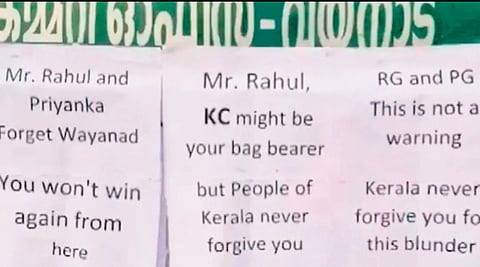 ഓഫീസ് - വയനാട്
Mr. Rahul and
Priyanka
Forget Wayanad
You won't win
again from
here
Mr. Rahul,
KC might be
your bag bearer
but People of
Kerala never
forgive you
RG and PG
This is not a
warning
Kerala never
forgive you fo
this blunder